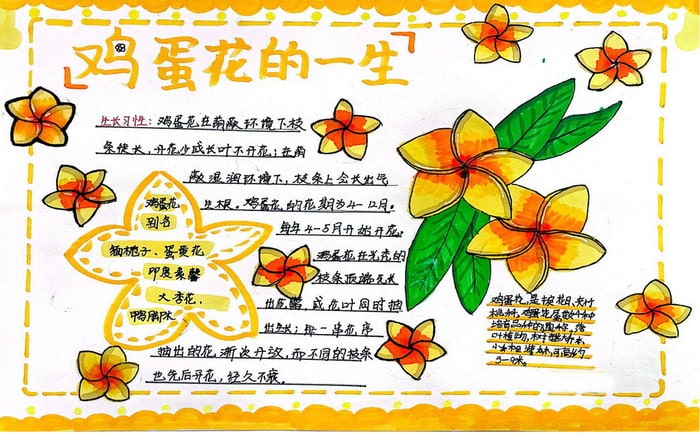 鸡蛋花的一生
生长习性：鸡蛋花在荫蔽环境下枝
条徒长，开花少或长叶不开花；在荫
蔽湿润环境下，枝条上会长出气
生根。鸡蛋花的花期为4-12月。
每年4-5月开始开花。
鸡蛋花在光秃的
枝条顶端先长
出花蕾，或花叶同时抽
出生长；每一串花序
抽出的花，渐次开放，而不同的枝条
也先后开花，经久不衰。
鸡蛋花
别名
缅栀子、蛋黄花
印度素馨
大季花、
鸭脚木
鸡蛋花，是